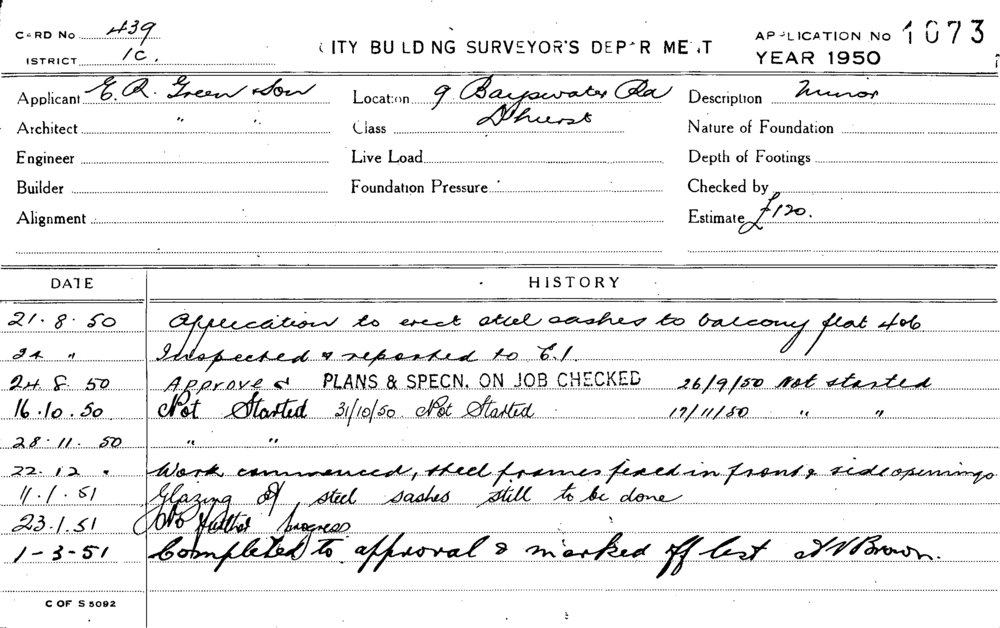 CARD No 439
CITY BUILDING SURVEYOR'S DEPARTMENT
APPLICATION No 1073
DISTRICT 1C.
YEAR 1950
Applicant E. R. Green & Son Location 9 Bayswater Rd Description Minor
Architect " " Class D'hurst Nature of Foundation
Engineer Live Load Depth of Footings
Builder Foundation Pressure Checked by
Alignment Estimate £120.
DATE HISTORY
21.8.50 Application to erect steel sashes to balcony flat 406
24 " Inspected & reported to E.I.
24.8.50 Approved PLANS & SPECN. ON JOB CHECKED 26/9/50 Not started
16.10.50 Not Started 31/10/50 Not Started 17/11/50 " "
28.11.50 " "
22.12 " Work commenced, steel frames fixed in front & side openings
11.1.51 Glazing of steel sashes still to be done
23.1.51 No further progress
1-3-51 Completed to approval & marked off list Brown.
C OF S 5092